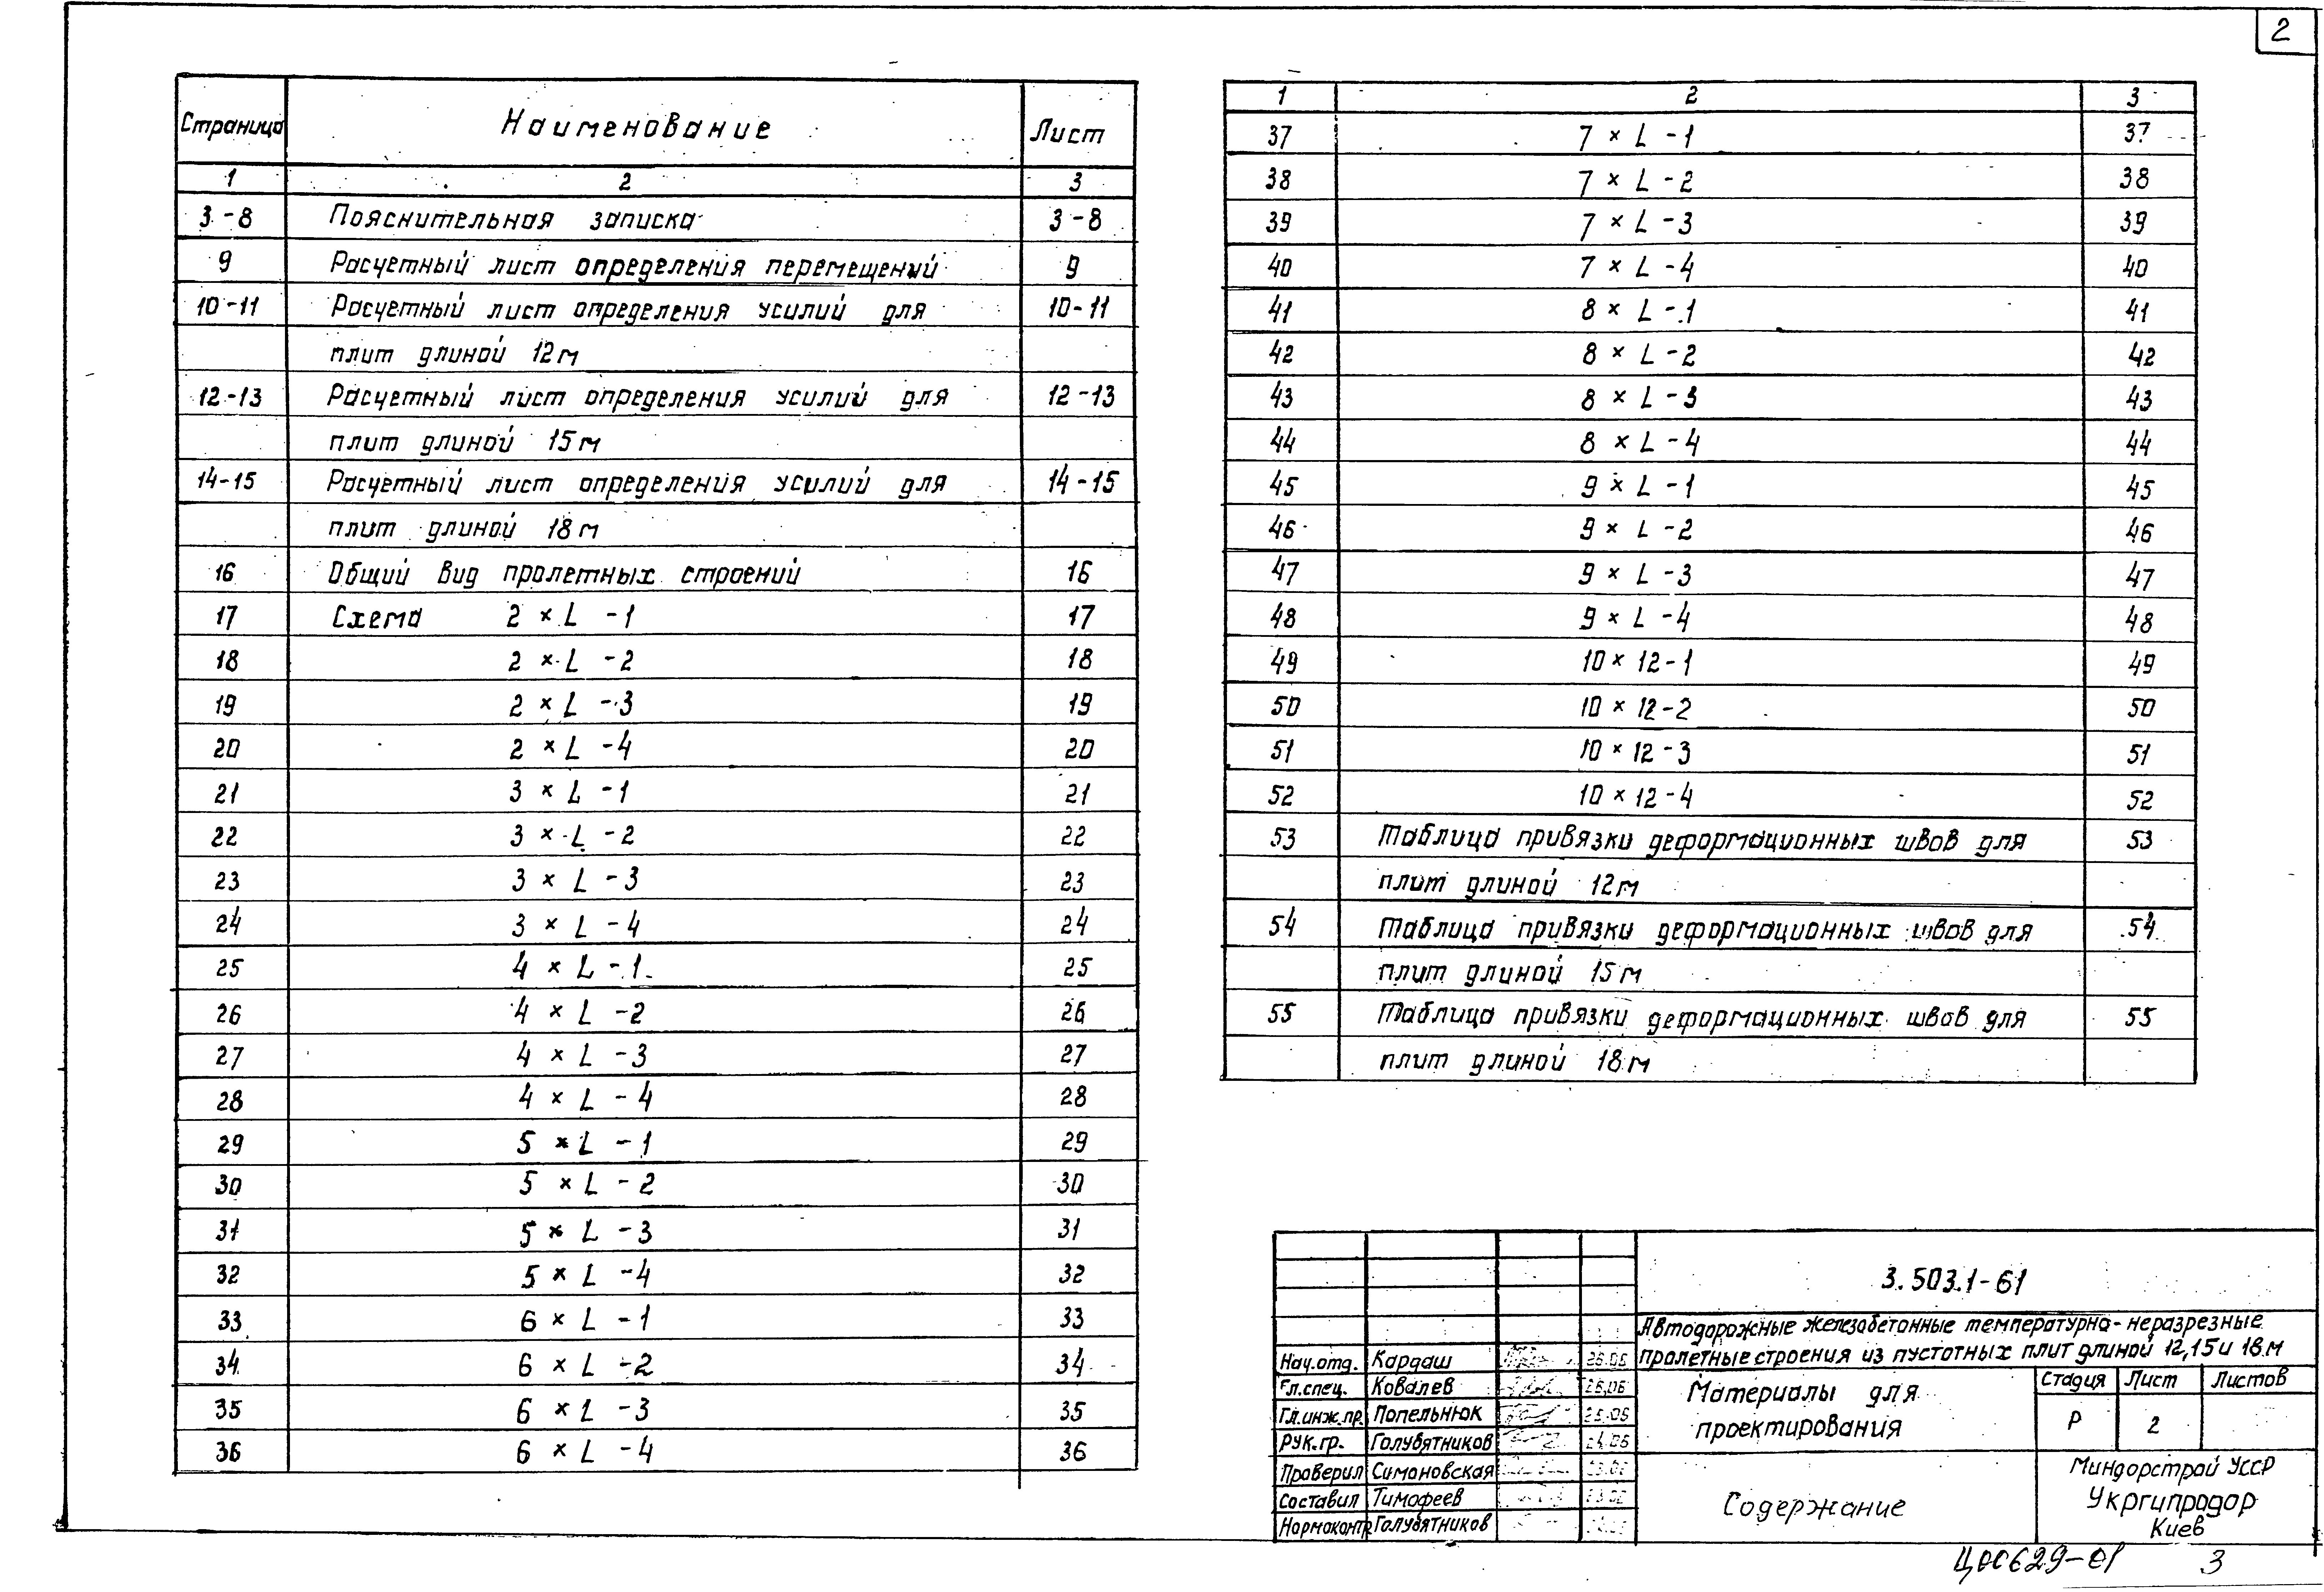 2
Страница Наименование Лист
1 2 3
3-8 Пояснительная записка 3-8
9 Расчетный лист определения перемещений 9
10-11 Расчетный лист определения усилий для 10-11
плит длиной 12м
12-13 Расчетный лист определения усилий для 12-13
плит длиной 15м
14-15 Расчетный лист определения усилий для 14-15
плит длиной 18м
16 Общий вид пролетных строений 16
17 Схема 2 × L -1 17
18 2 × L -2 18
19 2 × L -3 19
20 2 × L -4 20
21 3 × L -1 21
22 3 × L -2 22
23 3 × L -3 23
24 3 × L -4 24
25 4 × L -1 25
26 4 × L -2 26
27 4 × L -3 27
28 4 × L -4 28
29 5 × L -1 29
30 5 × L -2 30
31 5 × L -3 31
32 5 × L -4 32
33 6 × L -1 33
34 6 × L -2 34
35 6 × L -3 35
36 6 × L -4 36
1 2 3
37 7 × L -1 37
38 7 × L -2 38
39 7 × L -3 39
40 7 × L -4 40
41 8 × L -1 41
42 8 × L -2 42
43 8 × L -3 43
44 8 × L -4 44
45 9 × L -1 45
46 9 × L -2 46
47 9 × L -3 47
48 9 × L -4 48
49 10 × 12-1 49
50 10 × 12-2 50
51 10 × 12-3 51
52 10 × 12-4 52
53 Таблица привязки деформационных швов для 53
плит длиной 12м
54 Таблица привязки деформационных швов для 54
плит длиной 15м
55 Таблица привязки деформационных швов для 55
плит длиной 18м
3.503.1-61
Автодорожные железобетонные температурно-неразрезные
пролетные строения из пустотных плит длиной 12,15 и 18м
Нач.отд. Кардаш 26.06
Гл.спец. Ковалев 26.06
Гл.инж.пр. Попельнюк 25.06
Рук.гр. Голубятников 24.06
Проверил Симановская
Составил Тимофеев
Нормоконтр Голубятников
Материалы для
проектирования
Стадия Лист Листов
Р 2
Содержание
Миндорстрой УССР
Укргипродор
Киев
Ц00629-01 3